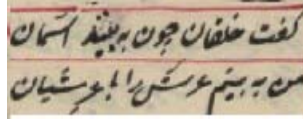 گفت خلقان چون به بینند آسمان
من به بینم عرش را با عرشیان